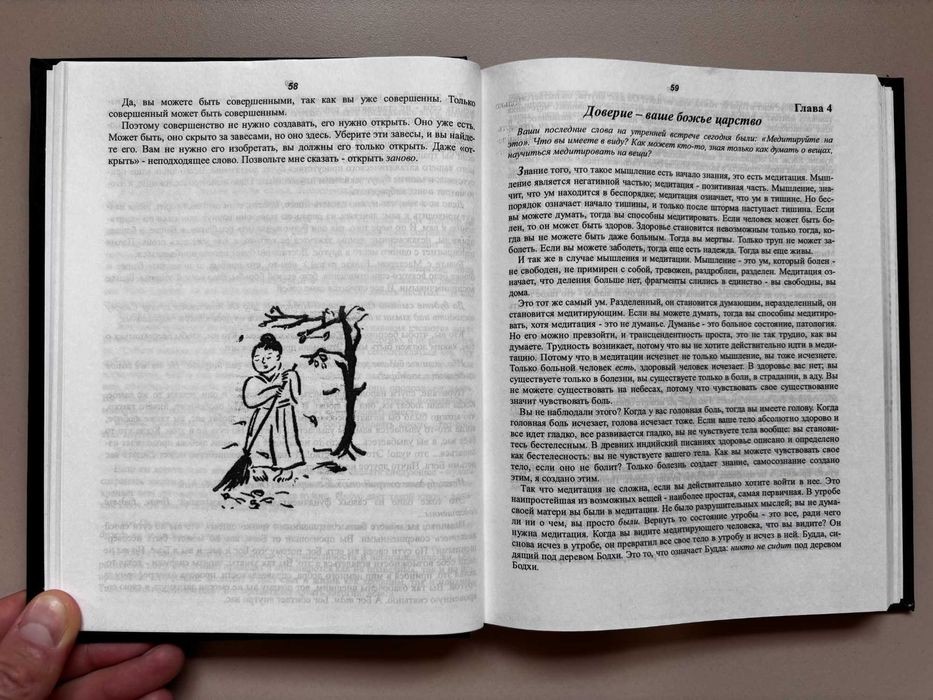 58
Да, вы можете быть совершенными, так как вы уже совершенны. Только
совершенный может быть совершенным.
Поэтому совершенство не нужно создавать, его нужно открыть. Оно уже есть.
Может быть, оно скрыто за завесами, но оно здесь. Уберите эти завесы, и вы найде-
те его. Вам не нужно его изобретать, вы должны его только открыть. Даже «от-
крыть» - неподходящее слово. Позвольте мне сказать - открыть заново.
59
Глава 4
Доверие – ваше божье царство
Ваши последние слова на утренней встрече сегодня были: «Медитируйте на
это». Что вы имеете в виду? Как может кто-то, зная только как думать о вещах,
научиться медитировать на вещи?
Знание того, что такое мышление есть начало знания, это есть медитация. Мыш-
ление является негативной частью; медитация - позитивная часть. Мышление, зна-
чит, что ум находится в беспорядке; медитация означает, что ум в тишине. Но бес-
порядок означает начало тишины, и только после шторма наступает тишина. Если
вы можете думать, тогда вы способны медитировать. Если человек может быть бо-
лен, то он может быть здоров. Здоровье становится невозможным только тогда, ко-
гда вы не можете быть даже больным. Тогда вы мертвы. Только труп не может за-
болеть. Если вы можете заболеть, тогда еще есть надежда. Тогда вы еще живы.
И так же в случае мышления и медитации. Мышление - это ум, который болен -
не свободен, не примирен с собой, тревожен, раздроблен, разделен. Медитация оз-
начает, что деления больше нет, фрагменты слились в единство - вы свободны, вы
дома.
Это тот же самый ум. Разделенный, он становится думающим, неразделенный, он
становится медитирующим. Если вы можете думать, тогда вы способны медитиро-
вать, хотя медитация - это не думанье. Думанье - это больное состояние, патология.
Но его можно превзойти, и трансцендентность проста, это не так трудно, как вы
думаете. Трудность возникает, потому что вы не хотите действительно идти в меди-
тацию. Потому что в медитации исчезнет не только мышление, вы тоже исчезнете.
Только больной человек есть, здоровый человек исчезает. В здоровье вас нет; вы
существуете только в болезни, вы существуете только в боли, в страдании, в аду. Вы
не можете существовать на небесах, потому что чувствовать свое существование
значит чувствовать боль.
Вы не наблюдали этого? Когда у вас головная боль, тогда вы имеете голову. Когда
головная боль исчезает, голова исчезает тоже. Если ваше тело абсолютно здорово и
все идет гладко, все развивается гладко, вы не чувствуете тела вообще: вы станови-
тесь бестелесным. В древних индийский писаниях здоровье описано и определено
как бестелесность: вы не чувствуете вашего тела. Как вы можете чувствовать свое
тело, если оно не болит? Только болезнь создает знание, самосознание создано
этим, я создано этим.
Так что медитация не сложна, если вы действительно хотите войти в нее. Это
наипростейшая из возможных вещей - наиболее простая, самая первичная. В утробе
своей матери вы были в медитации. Не было разрушительных мыслей; вы не дума-
ли ни о чем, вы просто были. Вернуть то состояние утробы - это все, ради чего
нужна медитация. Когда вы видите медитирующего человека, что вы видите? Он
снова исчез в утробе, он превратил все свое тело в утробу и исчез в ней. Будда, си-
дящий под деревом Бодхи. Это то, что означает Будда: никто не сидит под деревом
Бодхи.